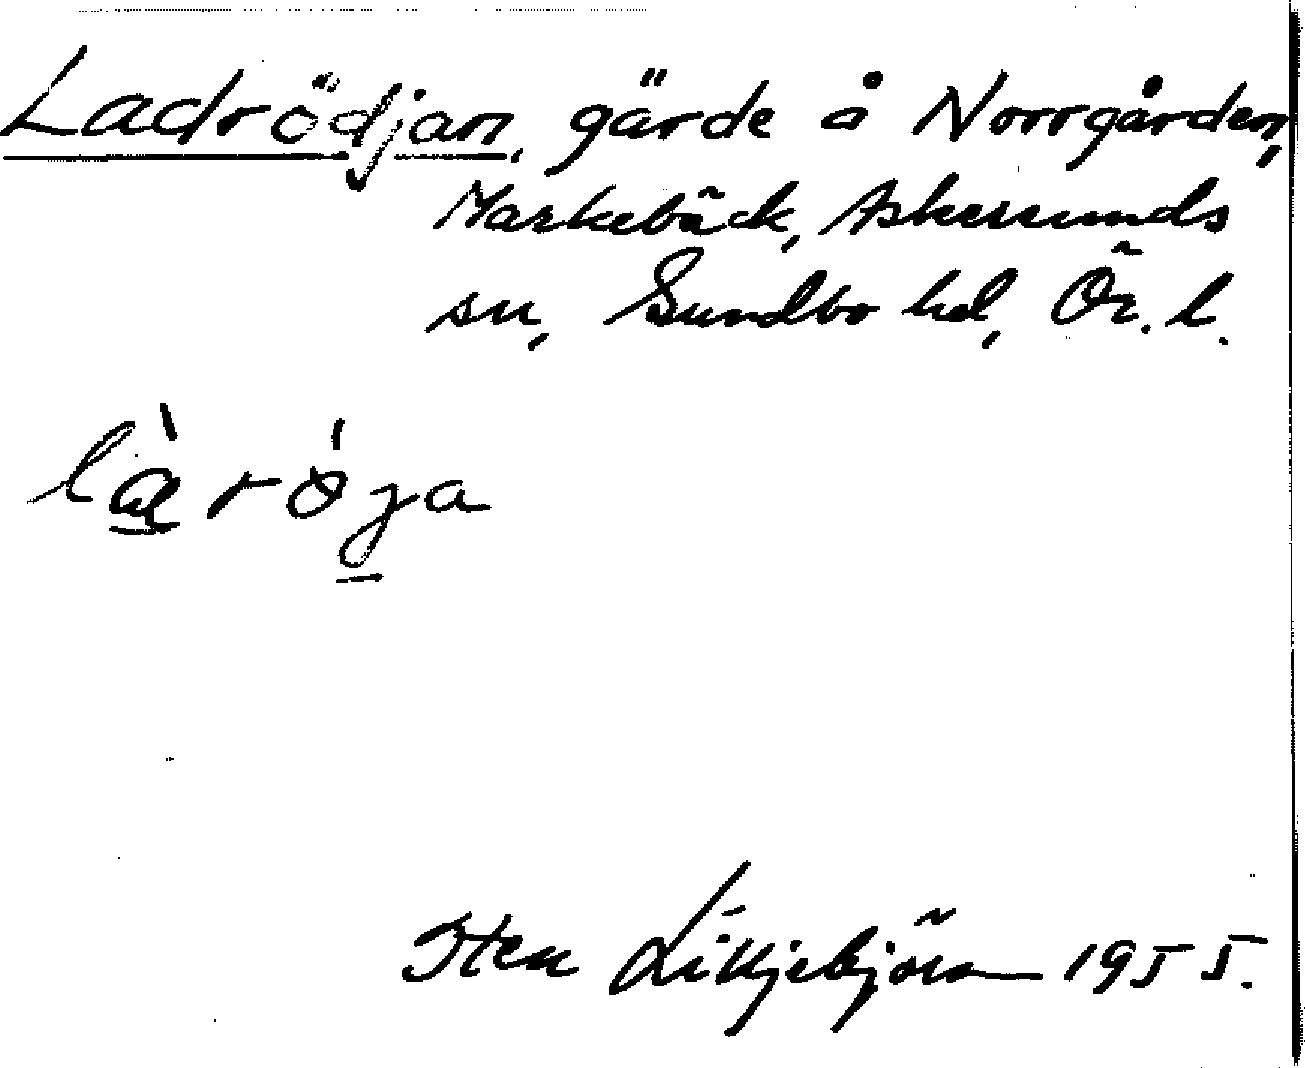 Ladrödjan, gärde å Norrgården,
Markebäck, Askersunds
sn, Sundbo hd, Ör. l.
Sten Liljebjörn 1955.